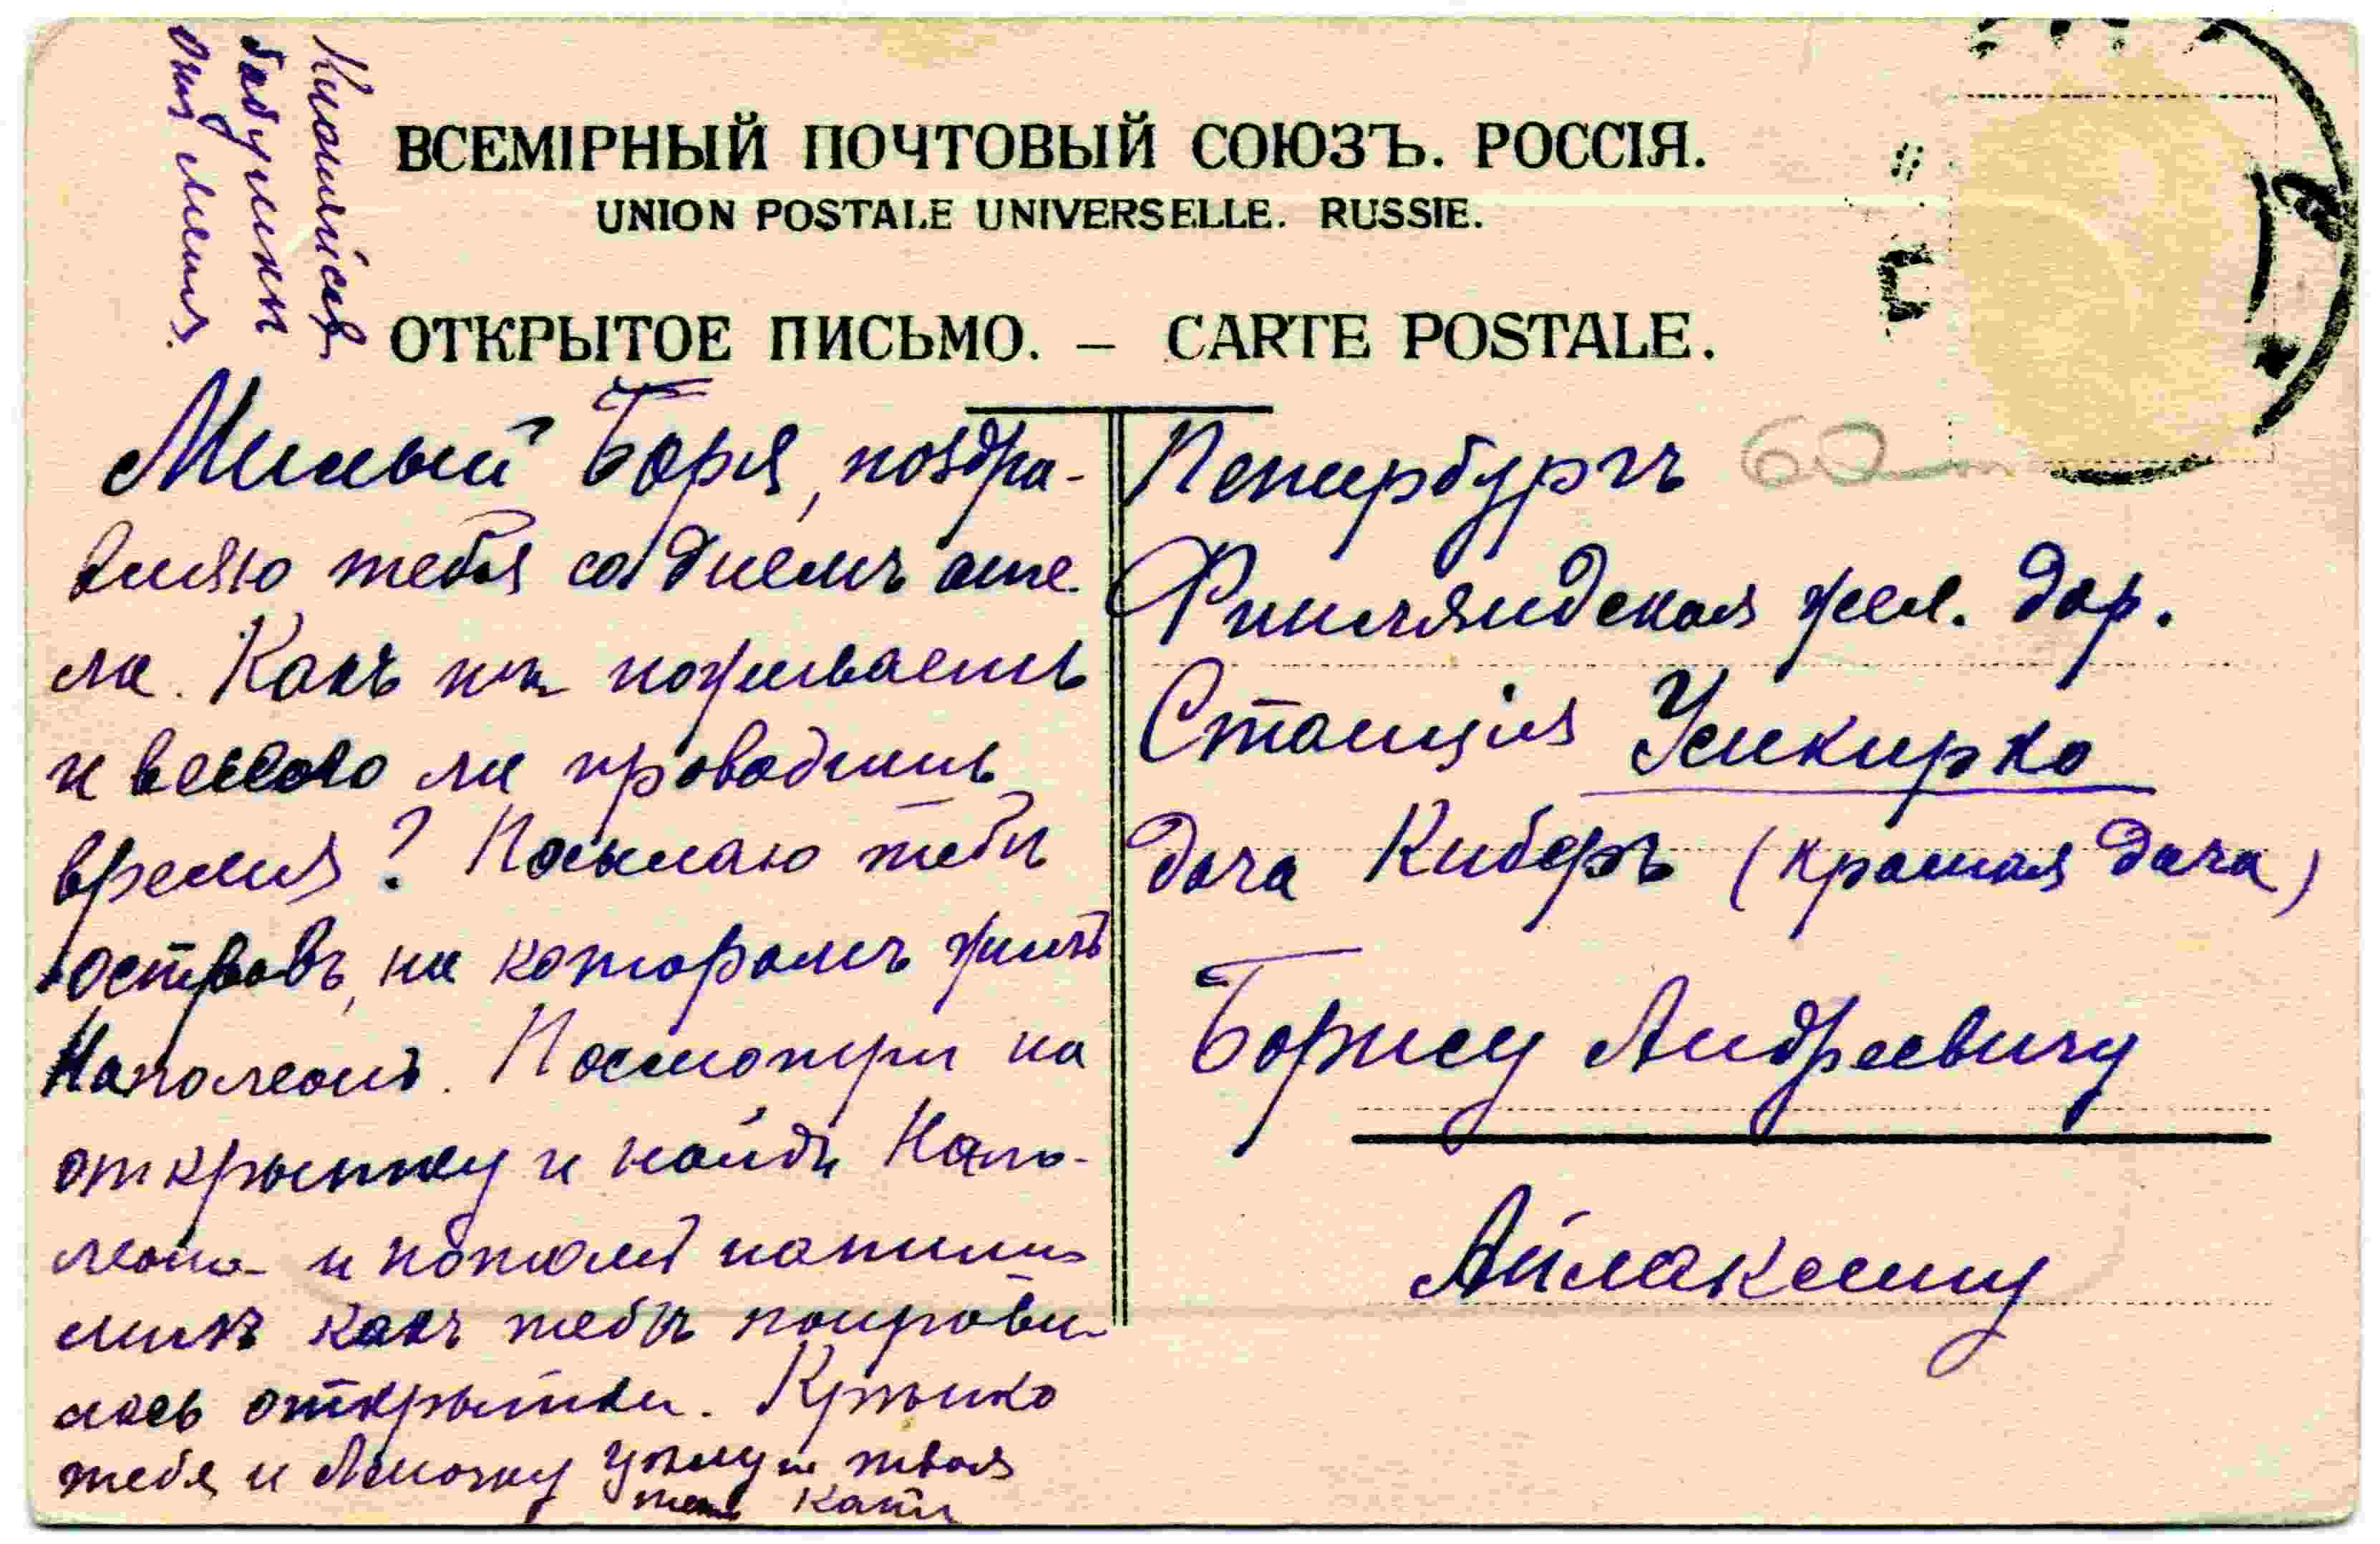 Кланяйся
бабушки
отъ меня.
ВСЕМІРНЫЙ ПОЧТОВЫЙ СОЮЗЪ. РОССІЯ.
UNION POSTALE UNIVERSELLE. RUSSIE.
ОТКРЫТОЕ ПИСЬМО. — CARTE POSTALE.
Милый Боря, поздра-
вляю тебя со днемъ анге-
ла. Какъ ты поживаешь
и весело ли проводишь
время? Посылаю тебѣ
островъ, на которомъ жилъ
Наполеонъ. Посмотри на
открытку и найди Напо-
леона и потомъ напиши
мнѣ какъ тебѣ понрави-
лась открытка. Крѣпко
тебя и цѣлую твоя
тетя Катя
Петербургъ
60
Финляндская жел. дор.
Станція Усикирко
дача Киберъ (красная дача)
Борису Андреевичу